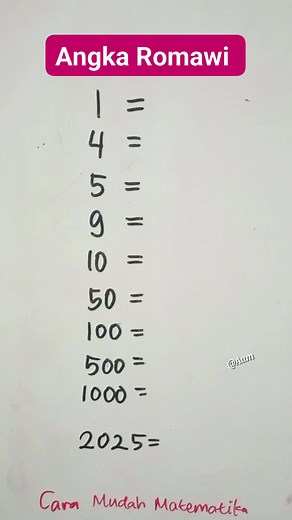 Angka Romawi
1 =
4 =
5 =
9 =
10 =
50 =
100 =
500 =
1000 =
2025=
Cara Mudah Matematika